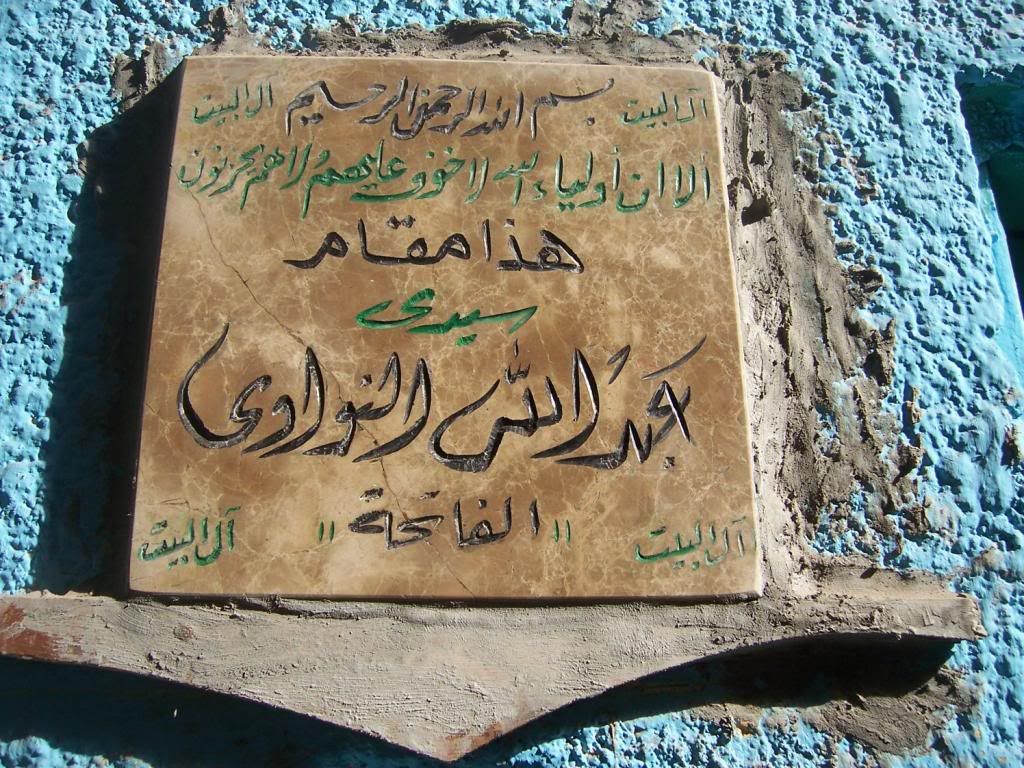 آل البيت بسم الله الرحمن الرحيم آل البيت
ألا ان أولياء الله لا خوف عليهم لا هم يحزنون
هذا مقام
سيدى
عبد الله النواوى
آل البيت " الفاتحة " آل البيت